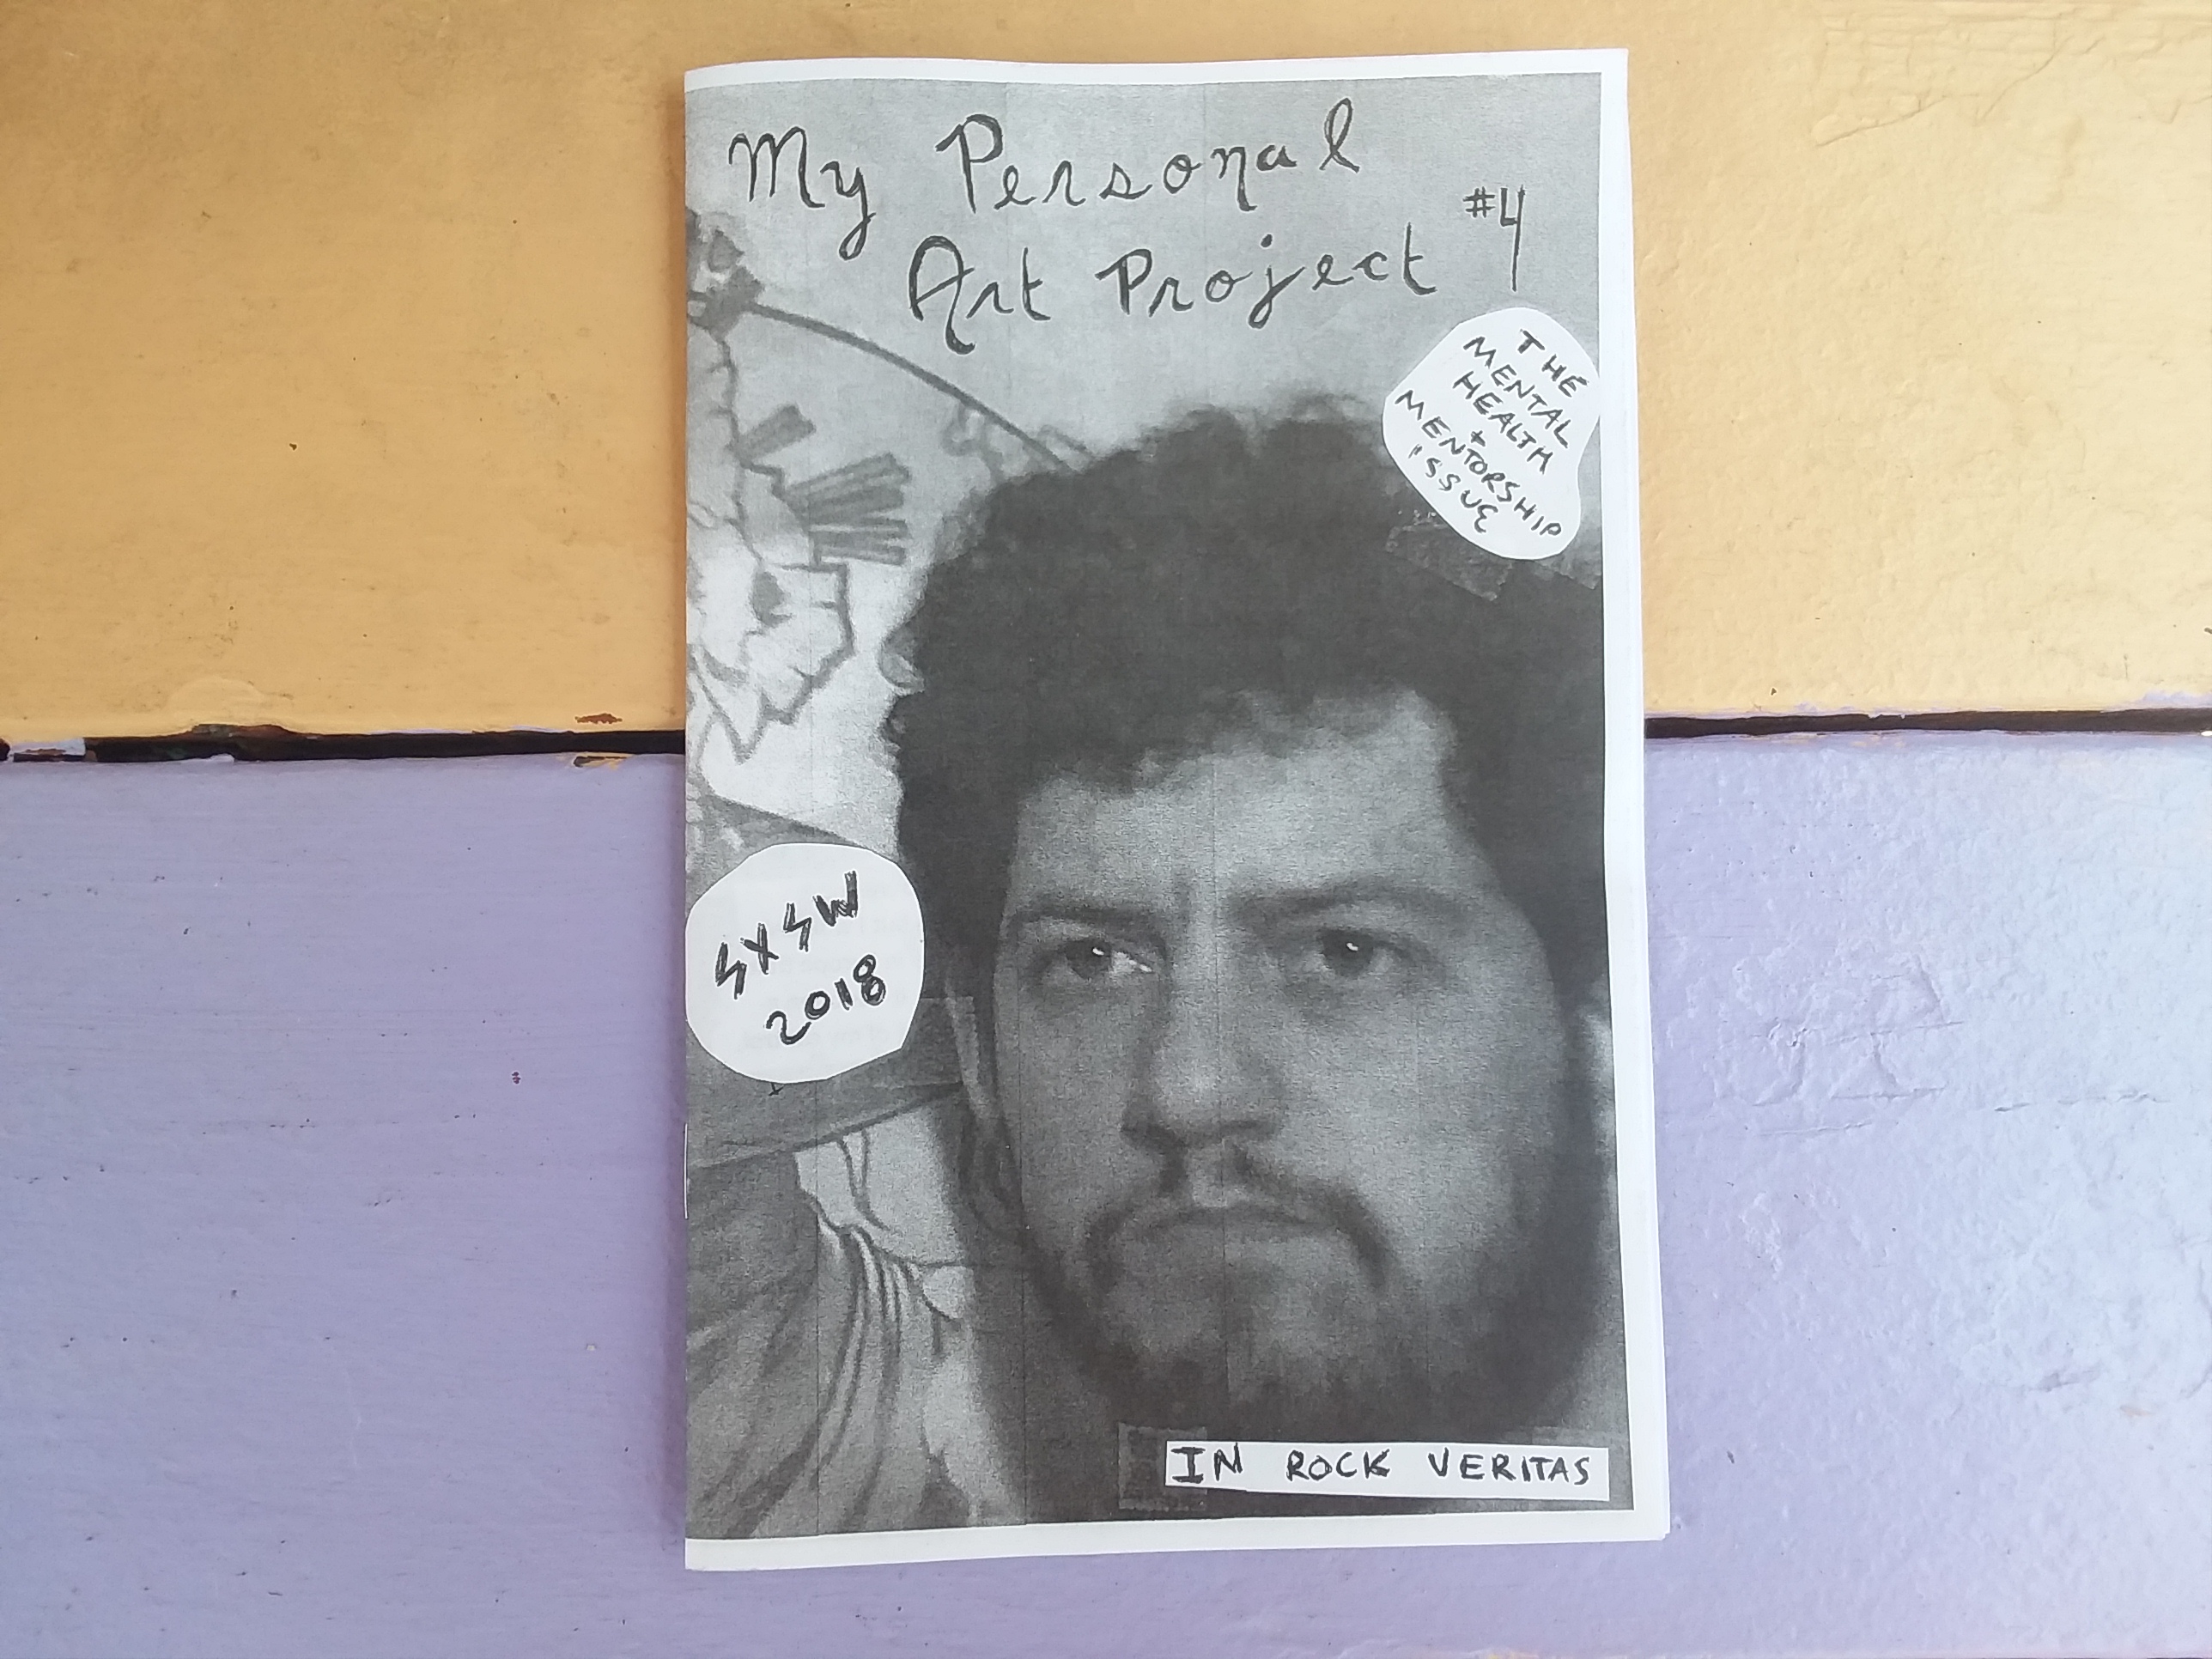 My Personal
Art Project #4
THE
MENTAL
HEALTH
+
MENTORSHIP
ISSUE
SXSW
2018
IN ROCK VERITAS